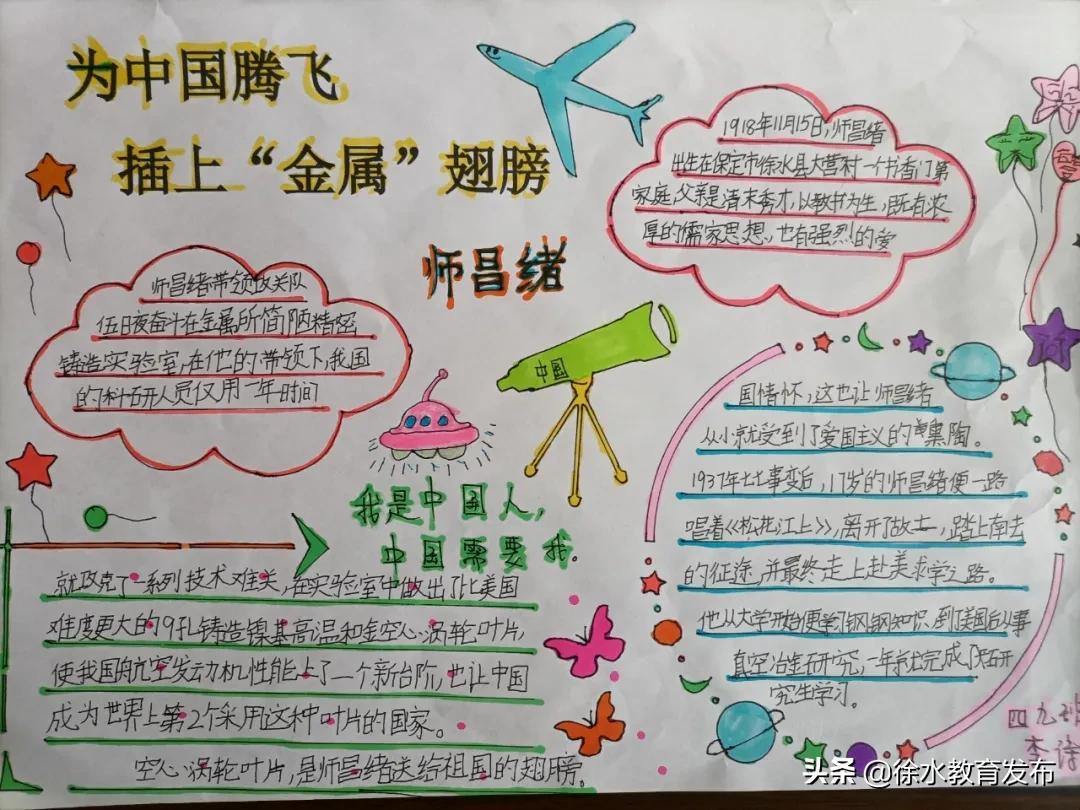 为中国腾飞
插上“金属”翅膀
师昌绪
1918年11月15日,师昌绪
出生在保定市徐水县大营村一个书香门第
家庭,父亲是清末秀才,以教书为生,既有浓
厚的儒家思想、也有强烈的爱
国情怀,这也让师昌绪
从小就受到了爱国主义的熏陶。
1937年七七事变后,17岁的师昌绪便一路
唱着《松花江上》,离开了故土,踏上南去
的征途,并最终走上赴美求学之路。
他从大学开始便学习钢铁知识,到了美国后从事
真空冶金研究,一年就完成了硕研
究生学习。
师昌绪带领攻关队
伍日夜奋斗在金属所简陋精密
铸造实验室,在他的带领下,我国
的科研人员仅用一年时间
就攻克了一系列技术难关,在实验室中做出了比美国
难度更大的9孔铸造镍基高温和金空心涡轮叶片,
使我国航空发动机性能上了一个新台阶,也让中国
成为世界上第2个采用这种叶片的国家。
空心涡轮叶片,是师昌绪送给祖国的翅膀。
中国
我是中国人,
中国需要我。
四九班
李诗
头条 @徐水教育发布